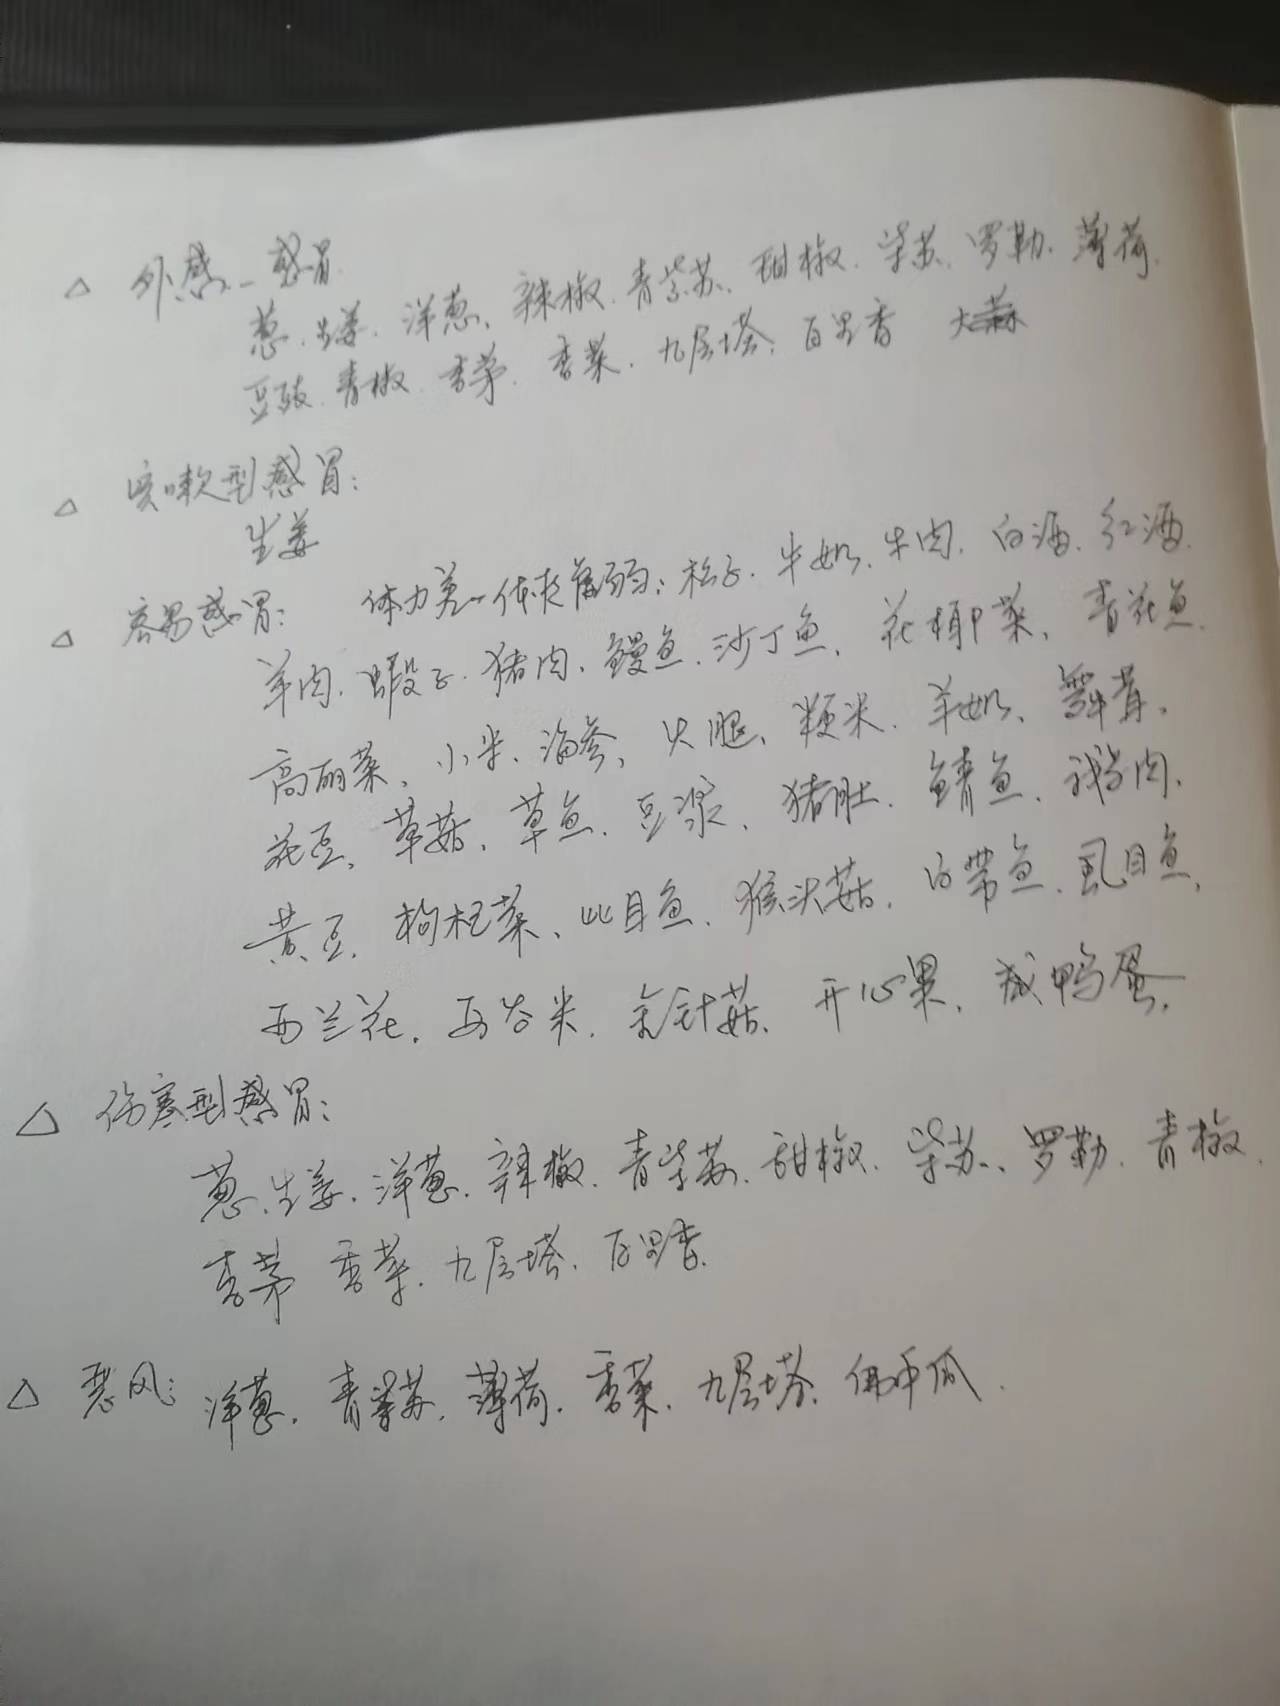 △ 外感—感冒
葱、生姜、洋葱、辣椒、青紫苏、甜椒、紫苏、罗勒、薄荷、
豆豉、青椒、香茅、香菜、九层塔、百里香 大蒜
△ 咳嗽型感冒:
生姜
△ 容易感冒: 体力差—体衰羸弱:松子、牛奶、牛肉、白酒、红酒、
羊肉、蝦子、猪肉、鳗鱼、沙丁鱼、花椰菜、青花鱼、
高丽菜、小米、海参、火腿、粳米、羊奶、舞茸、
花豆、草菇、草鱼、豆浆、猪肚、鲭鱼、鹅肉、
黄豆、枸杞菜、比目鱼、猴头菇、白带鱼、虱目鱼、
西兰花、西谷米、金针菇、开心果、咸鸭蛋、
△ 伤寒型感冒:
葱、生姜、洋葱、辣椒、青紫苏、甜椒、紫苏、罗勒、青椒、
香茅 香菜、九层塔、百里香、
△ 恶风: 洋葱、青紫苏、薄荷、香菜、九层塔、佛手瓜、